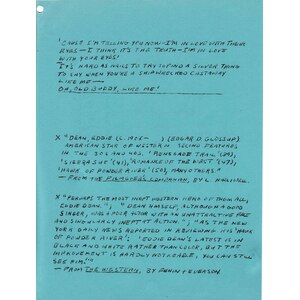 'CAUSE I'M TELLING YOU NOW—I'M IN LOVE WITH THEIR
EYES—I THINK IT'S THE TRUTH—I'M IN LOVE
WITH YOUR EYES!
IT'S HARD AS NAILS TO TRY TO FIND A SILVER THING
TO SAY WHEN YOU'RE A SHIPWRECKED CASTAWAY
LIKE ME—
OH, OLD BUDDY, LIKE ME!
X "DEAN, EDDIE (C. 1908— ) (EDGAR D. GLOSSUP).
AMERICAN STAR OF WESTERN SECOND FEATURES
IN THE 30S AND 40S. 'RENEGADE TRAIL' (39),
'SIERRA SUE' (41), 'ROMANCE OF THE WEST' (47),
'HAWK OF POWDER RIVER' (50), MANY OTHERS"
— FROM THE FILMGOERS COMPANION, BY L. HALLIWELL.
X "PERHAPS THE MOST INEPT WESTERN HERO OF THEM ALL,
EDDIE DEAN." "DEAN HIMSELF, ALTHOUGH A GOOD
SINGER, WAS A POOR ACTOR WITH AN UNATTRACTIVE FACE
AND SINGULARLY INEPT AT ACTION." "AS THE NEW
YORK DAILY NEWS REPORTED IN REVIEWING HIS 'HAWK
OF POWDER RIVER': 'EDDIE DEAN'S LATEST IS IN
BLACK AND WHITE RATHER THAN COLOR, BUT THE
IMPROVEMENT IS HARDLY NOTICEABLE, YOU CAN STILL
SEE HIM.'"
— FROM THE WESTERN, BY FENIN & EVERSON